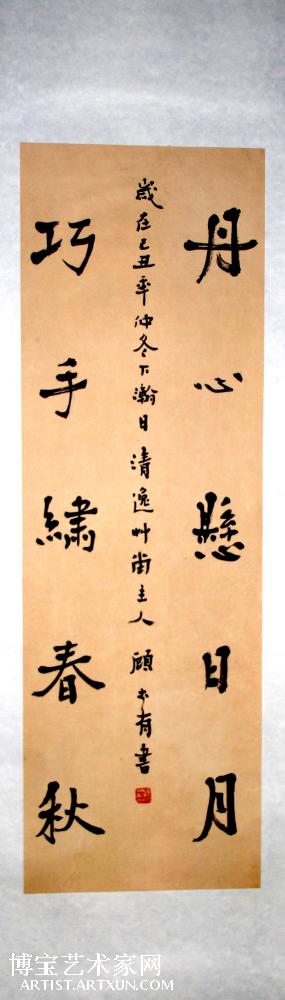 丹心懸日月
歲在己丑年仲冬下瀚日清逸艸堂主人顧大有書
巧手繡春秋
博宝艺术家网
ARTIST.ARTXUN.COM